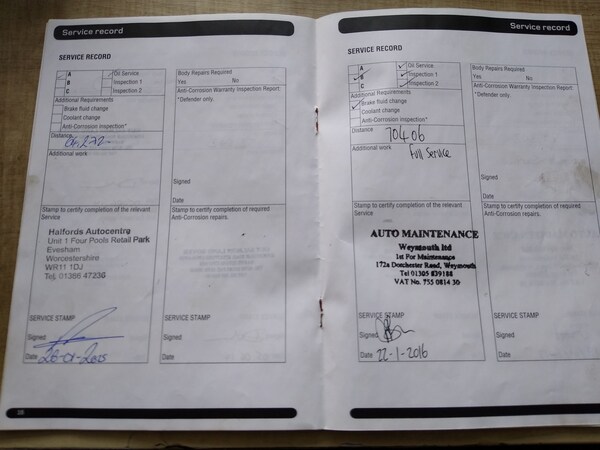 Service record
SERVICE RECORD
A
B
C
Oil Service
Inspection 1
Inspection 2
Additional Requirements
Brake fluid change
Coolant change
Anti-Corrosion inspection*
Distance
Additional work
Body Repairs Required
Yes No
Anti-Corrosion Warranty Inspection Report:
*Defender only.
Signed
Date
Stamp to certify completion of the relevant
Service
Halfords Autocentre
Unit 1 Four Pools Retail Park
Evesham
Worcestershire
WR11 1DJ
Tel: 01386 47236
SERVICE STAMP
Signed
Date
Stamp to certify completion of required
Anti-Corrosion repairs.
SERVICE STAMP
Signed
Date
Service record
SERVICE RECORD
A
B
C
Oil Service
Inspection 1
Inspection 2
Additional Requirements
Brake fluid change
Coolant change
Anti-Corrosion inspection*
Distance 70406
Additional work
Full Service
Body Repairs Required
Yes No
Anti-Corrosion Warranty Inspection Report:
*Defender only.
Signed
Date
Stamp to certify completion of the relevant
Service
AUTO MAINTENANCE
Weymouth ltd
1st For Maintenance
172a Dorchester Road, Weymouth
Tel 01305 839188
VAT No. 755 0814 30
SERVICE STAMP
Signed
Date 22-1-2016
Stamp to certify completion of required
Anti-Corrosion repairs.
SERVICE STAMP
Signed
Date